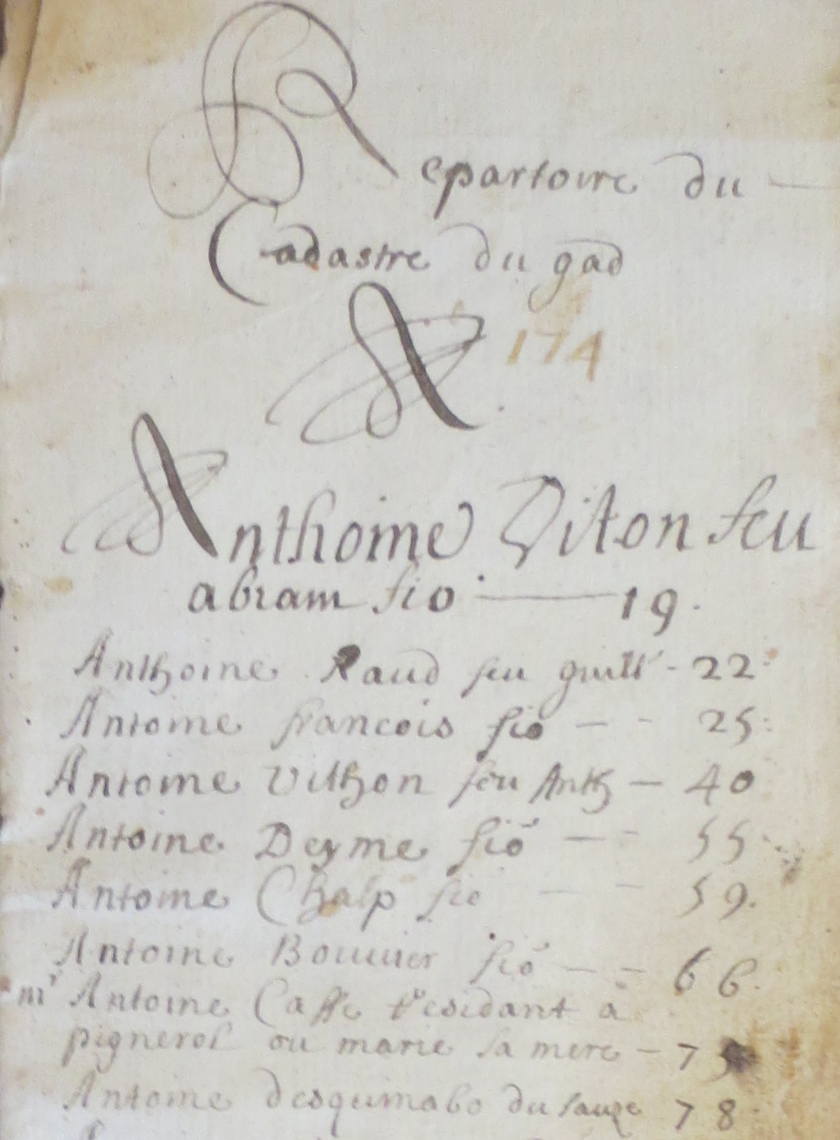 Repartoire du
Cadastre du gad
A 174
Anthoine Viton feu
abram fio 19.
Anthoine Raud feu guill - 22
Antoine francois fio - - 25
Antoine Vithon feu Anth - 40
Antoine Deyme fio - - 55
Antoine Chalp fio - - 59.
Antoine Bouuier fio - - 66.
mr Antoine Caffe residant a
pignerol ou marie sa mere - 75
Antoine desquinabo du sauze 78